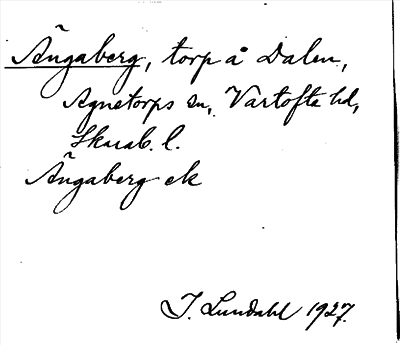 Ängaberg, torp å Dalen,
Agnetorps sn, Vartofta hd,
Skarab. l.
Ängaberg ek
I. Lundahl 1927.